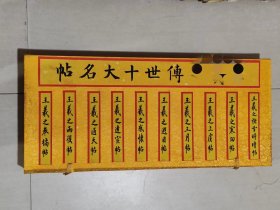 傳世十大名帖
王羲之快雪時晴帖
王羲之寒切帖
王羲之上虞帖
王羲之月帖
王羲之遊目帖
王羲之帖
王羲之遠宦帖
王羲之通天帖
王羲之雨後帖
王羲之奉橘帖